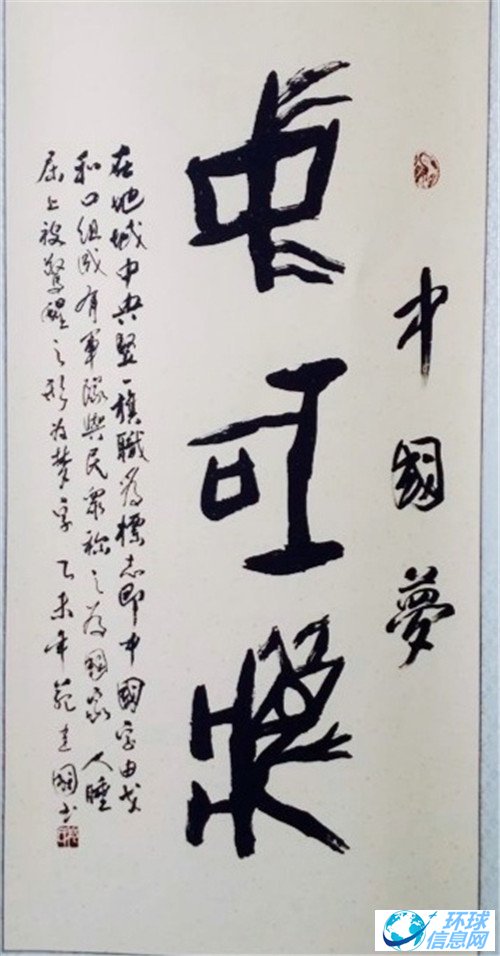 中國夢
中國夢
在地域中央竖一旗幟為標志即中國字由戈
和口组成有軍隊與民眾称之為國家人睡
床上被驚醒之形为梦字乙未年范建國书
环球
信息网